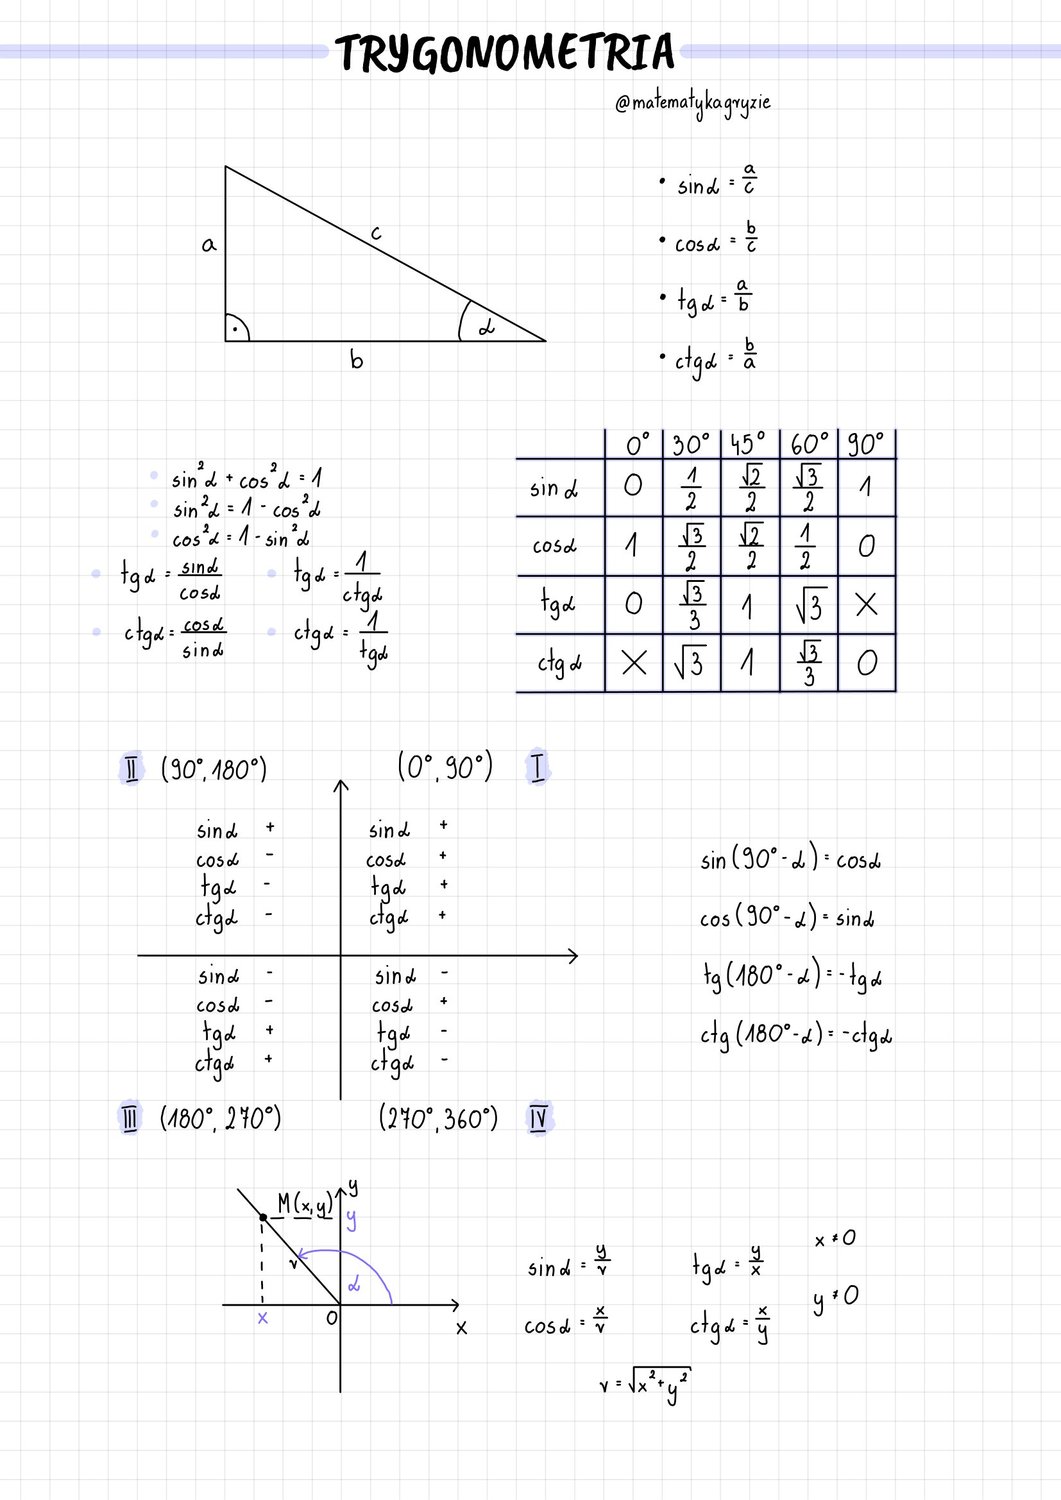 TRYGONOMETRIA
@matematykagryzie
a
c
b
α
• sinα = a/c
• cosα = b/c
• tgα = a/b
• ctgα = b/a
• sin²α + cos²α = 1
• sin²α = 1 - cos²α
• cos²α = 1 - sin²α
• tgα = sinα/cosα • tgα = 1/ctgα
• ctgα = cosα/sinα • ctgα = 1/tgα
0° 30° 45° 60° 90°
sinα 0 1/2 √2/2 √3/2 1
cosα 1 √3/2 √2/2 1/2 0
tgα 0 √3/3 1 √3 X
ctgα X √3 1 √3/3 0
II (90°, 180°)
sinα +
cosα -
tgα -
ctgα -
(0°, 90°) I
sinα +
cosα +
tgα +
ctgα +
sinα -
cosα -
tgα +
ctgα +
III (180°, 270°)
sinα -
cosα +
tgα -
ctgα -
(270°, 360°) IV
sin(90° - α) = cosα
cos(90° - α) = sinα
tg(180° - α) = -tgα
ctg(180° - α) = -ctgα
M(x,y)
y
y
r
α
x
0
x
sinα = y/r
tgα = y/x
x ≠ 0
cosα = x/r
ctgα = x/y
y ≠ 0
r = √x² + y²